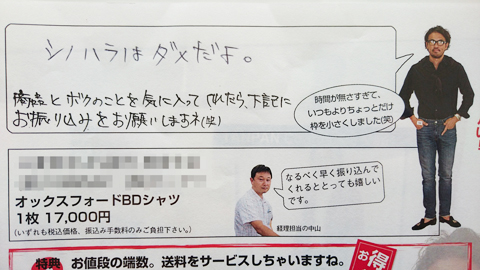 シノハラはダメだよ。
商品とボクのことを気に入ってくれたら、下記に
お振り込みをお願いしますネ(笑)
時間が無さすぎて、
いつもよりちょっとだけ
枠を小さくしました(笑)
オックスフォードBDシャツ
1枚 17,000円
(いずれも税込価格、振込み手数料のみご負担下さい。)
なるべく早く振り込んで
くれるととっても嬉しい
です。
経理担当の中山
特典 お値段の端数。送料をサービスしちゃいますね。
お得